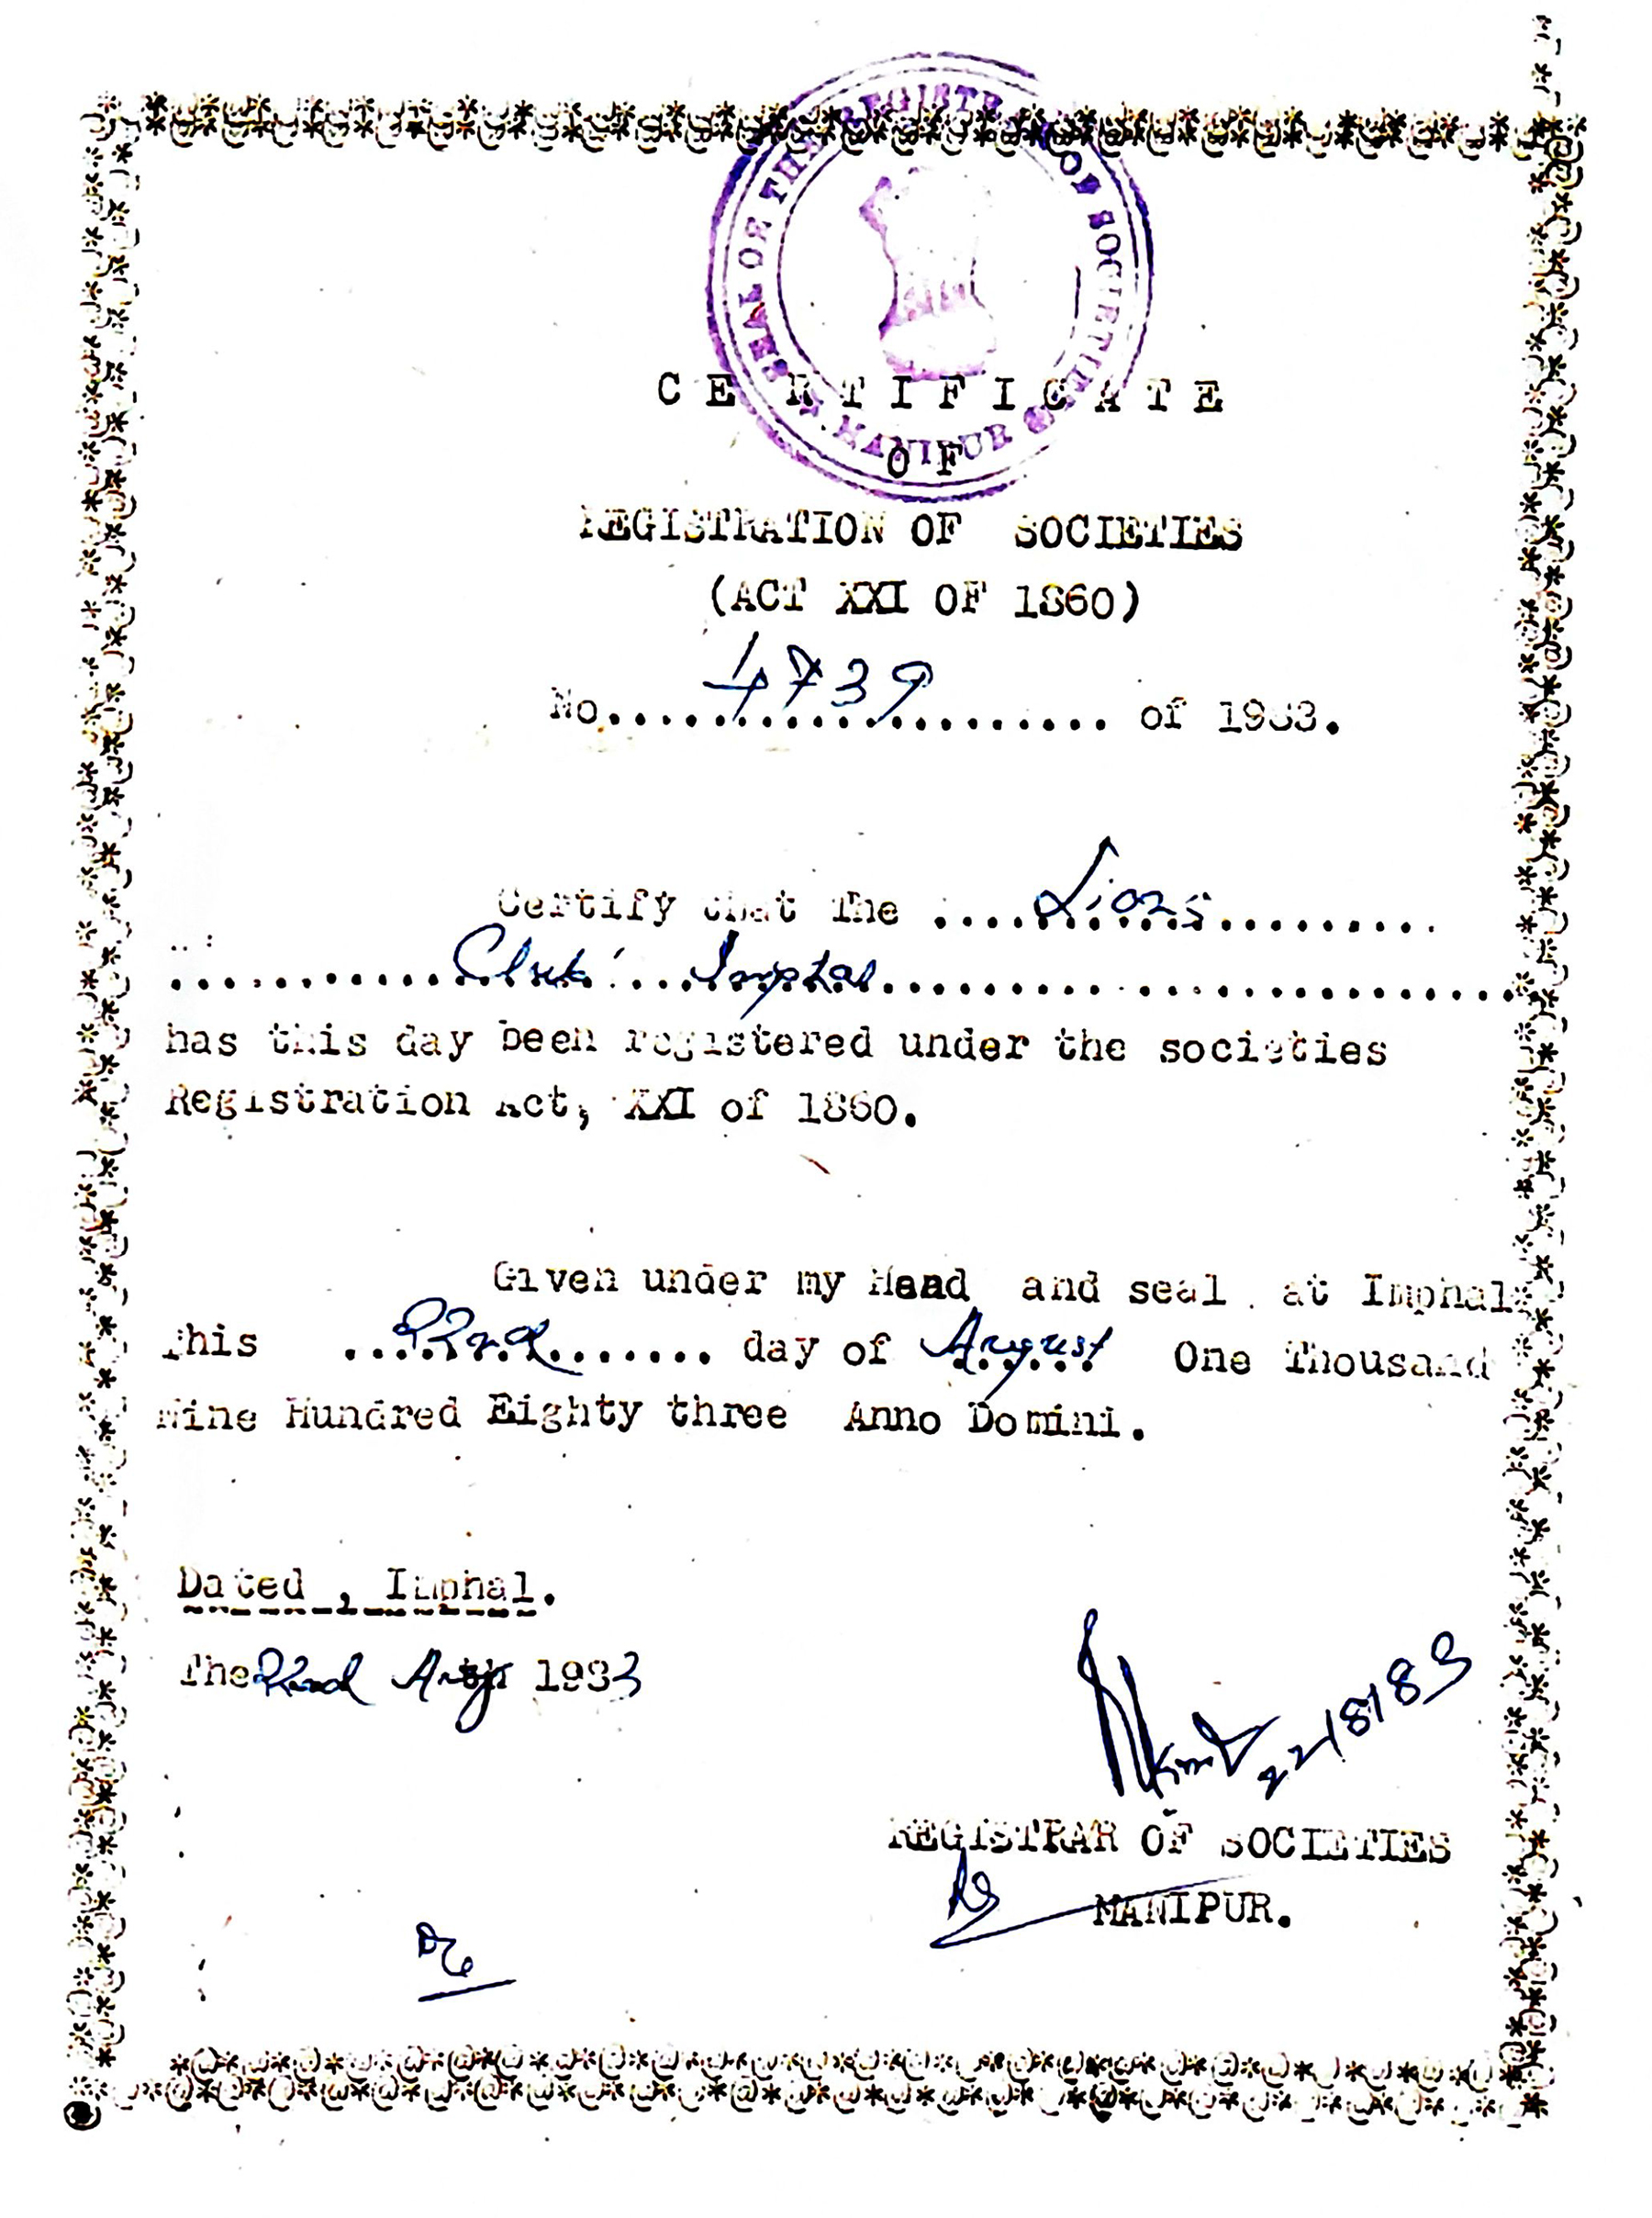 SEAL OF THE REGISTRAR OF SOCIETIES
MANIPUR
CERTIFICATE
OF
REGISTRATION OF SOCIETIES
(ACT XXI OF 1860)
No. 4739 of 1983.
Certify that The .... Lions ....
.... Club Imphal ....
has this day been registered under the societies
Registration Act, XXI of 1860.
Given under my Hand and seal at Imphal
This .... 22nd .... day of August One Thousand
Nine Hundred Eighty three Anno Domini.
Dated , Imphal.
The 22nd Aug 1983
22/8/83
REGISTRAR OF SOCIETIES
MANIPUR.